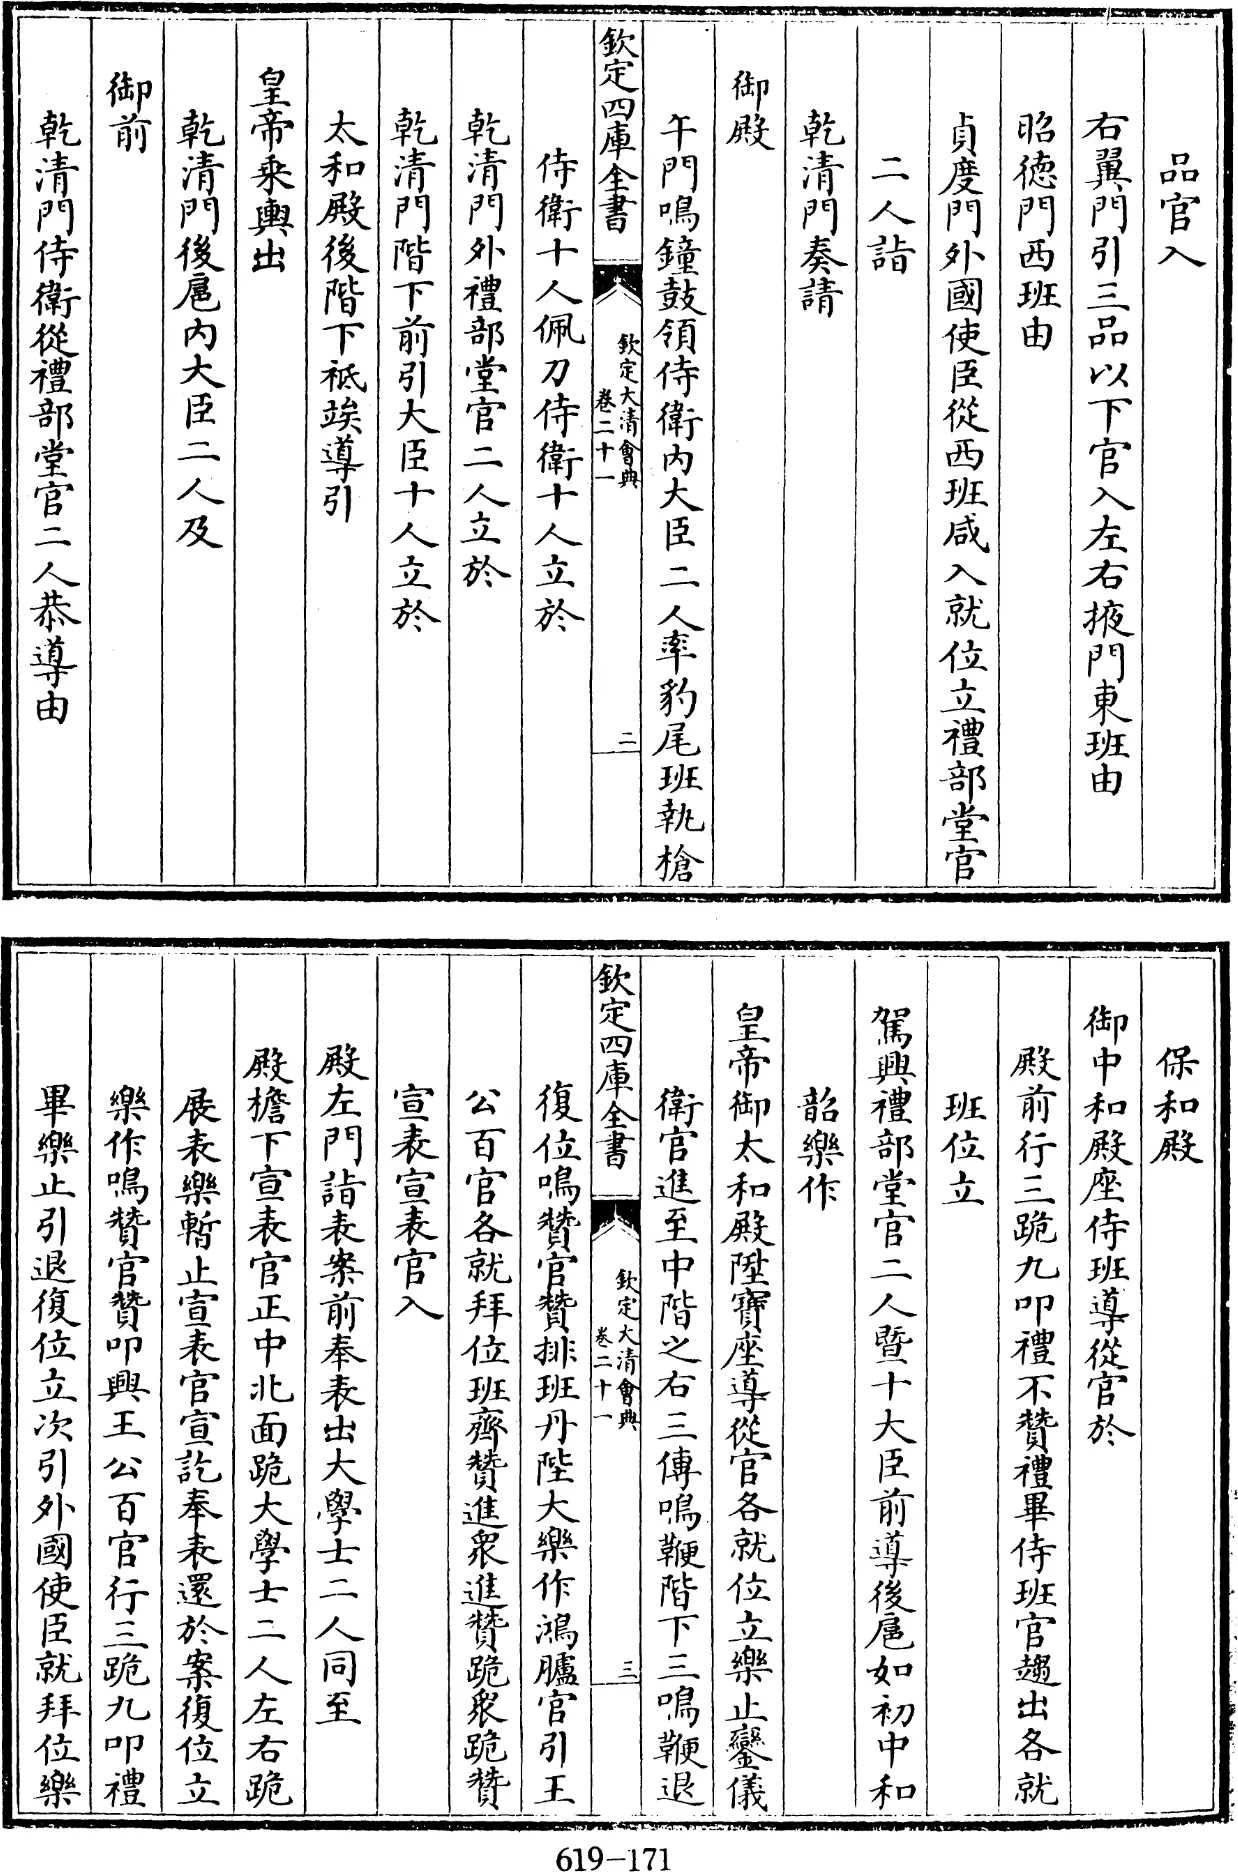 品官入
右翼門引三品以下官入左右掖門東班由
昭德門西班由
貞度門外國使臣從西班咸入就位立禮部堂官
二人詣
乾清門奏請
御殿
午門鳴鐘鼓領侍衛内大臣二人率豹尾班執槍
欽定四庫全書
欽定大清會典
卷二十一
二
侍衛十人佩刀侍衛十人立於
乾清門外禮部堂官二人立於
乾清門階下前引大臣十人立於
太和殿後階下祗竢導引
皇帝乘輿出
乾清門後扈内大臣二人及
御前
乾清門侍衛從禮部堂官二人恭導由
保和殿
御中和殿座侍班導從官於
殿前行三跪九叩禮不贊禮畢侍班官趨出各就
班位立
駕興禮部堂官二人暨十大臣前導後扈如初中和
韶樂作
皇帝御太和殿陞寶座導從官各就位立樂止鑾儀
衛官進至中階之右三傳鳴鞭階下三鳴鞭退
欽定四庫全書
欽定大清會典
卷二十一
三
復位鳴贊官贊排班丹陛大樂作鴻臚官引王
公百官各就拜位班齊贊進衆進贊跪衆跪贊
宣表宣表官入
殿左門詣表案前奉表出大學士二人同至
殿檐下宣表官正中北面跪大學士二人左右跪
展表樂暫止宣表官宣訖奉表還於案復位立
樂作鳴贊官贊叩興王公百官行三跪九叩禮
畢樂止引退復位立次引外國使臣就拜位樂
619-171